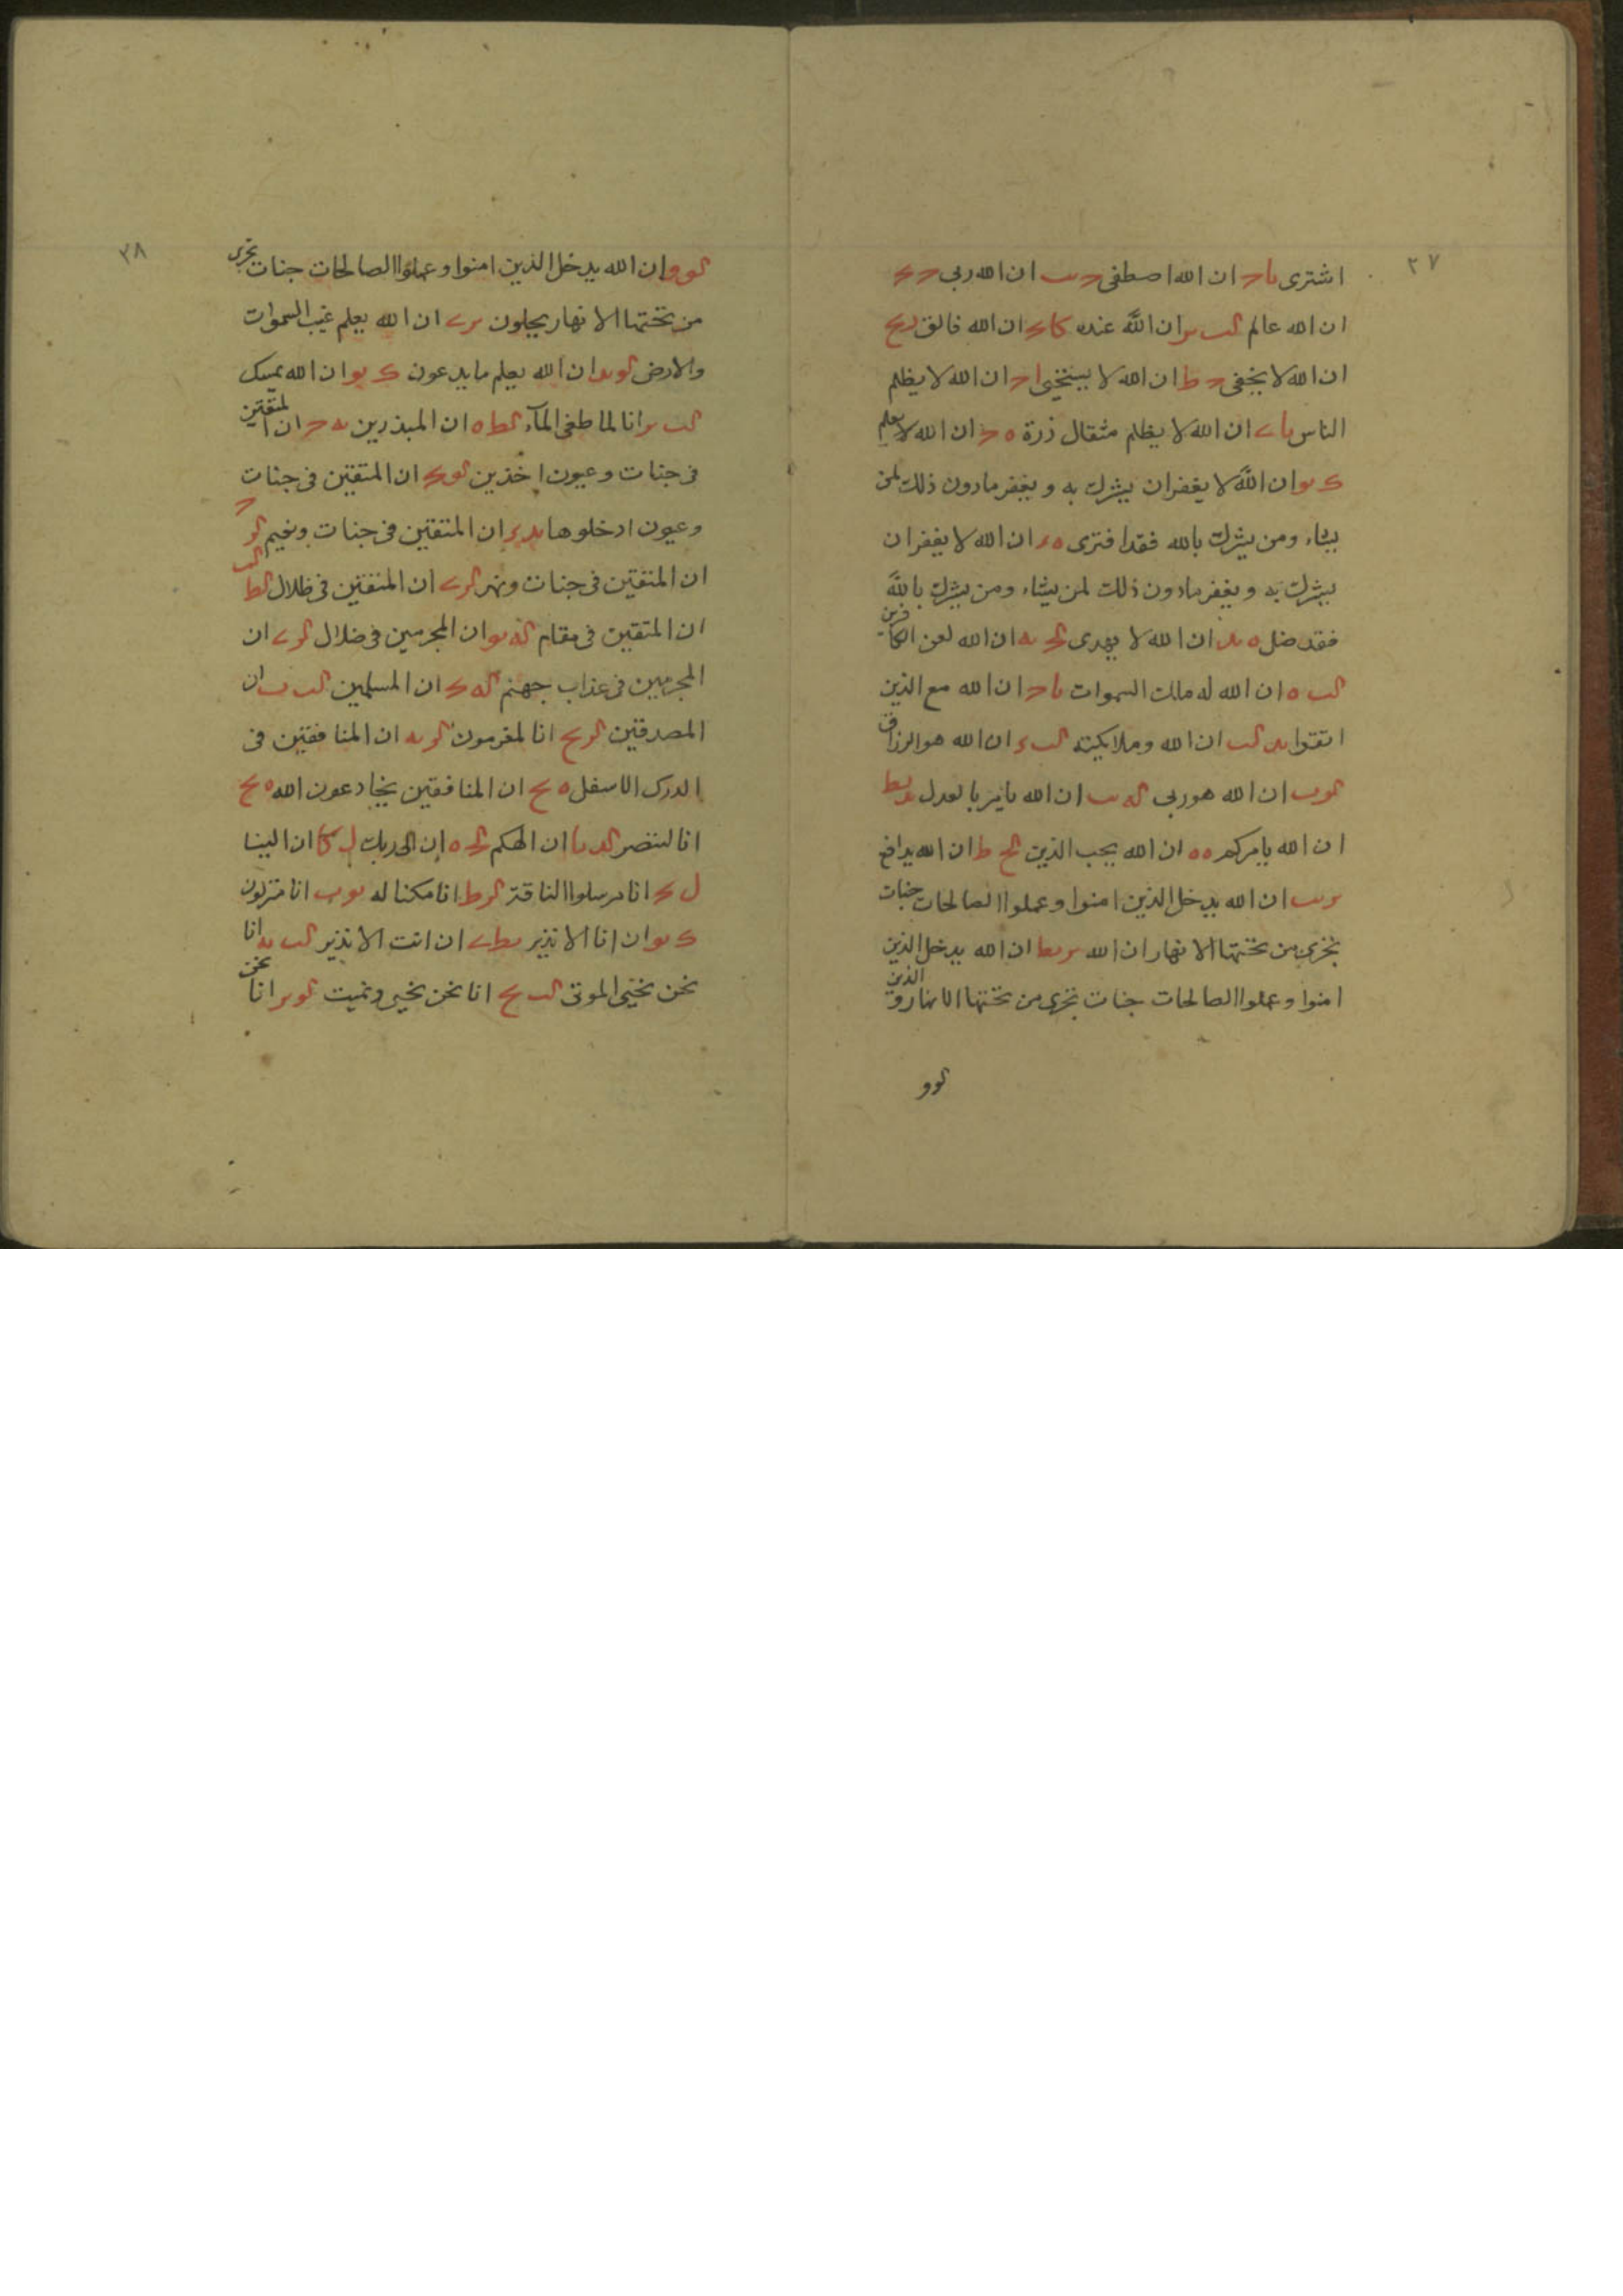 ٢٧
اشترى يا ح ان الله اصطفى ح ب ان الله ربى ح
ان الله عالم لب ان الله عنده كا ان الله فالق
ان الله لا يخفى ح ط ان الله لا يستحيى ا ح ان الله لا يظلم
الناس يا ان الله لا يظلم مثقال ذرة ه ح ان الله لا يعلم
ك يو ان الله لا يغفر ان يشرك به و يغفر مادون ذلك لمن
يشاء ومن يشرك بالله فقد افترى ه ان الله لا يغفر ان
يشرك به و يغفر مادون ذلك لمن يشاء ومن يشرك بالله
فقد ضل ه يد ان الله لا يهدى ان الله لعن الكافرين
لب ه ان الله له ملك السموات يا ح ان الله مع الذين
اتقوا يد لب ان الله وملايكته لب ان الله هو الرزاق
لو ب ان الله هو ربى ان الله يامر بالعدل يد يط
ان الله يامركم ه ه ان الله يحب الذين لح ط ان الله يدافع
ان الله يدخل الذين امنوا وعملوا الصالحات جنات
تجرى من تحتها الانهار ان الله ان الله يدخل الذين
امنوا وعملوا الصالحات جنات تجرى من تحتها الانهار و الذين
لو و
٣٨
لو و ان الله يدخل الذين امنوا وعملوا الصالحات جنات تجرى
من تحتها الانهار يحلون ان الله يعلم غيب السموات
والارض لو يد ان الله يعلم ما يدعون ك يو ان الله يمسك
لب انا لما طغى المآء لط ه ان المبذرين يه ح ان المتقين
فى جنات وعيون اخذين ان المتقين فى جنات
وعيون ادخلوها يد ان المتقين فى جنات ونعيم
ان المتقين فى جنات ونهر ان المتقين فى ظلال لط
ان المتقين فى مقام يو ان المجرمين فى ضلال ان
المجرمين فى عذاب جهنم له ك ان المسلمين لب ب ان
المصدقين انا لمغرمون ان المنافقين فى
الدرك الاسفل ه ان المنافقين يخادعون الله ه
انا لننصر لد يا ان الهكم ه ان الى ربك ل كا ان الينا
ل انا مرسلوا الناقة ط انا مكنا له يو ب انا منزلون
ك يو ان انا الا نذير يط ان انت الا نذير لب يه انا
نحن نحيى الموتى لب انا نحن نحيى ونميت لو انا نحن